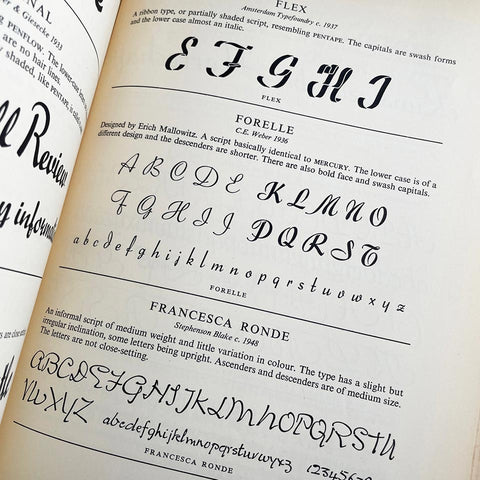 NAL
& Giesecke 1933
PENFLOW. The lower-case
are no hair lines.
shaded, like PENTAPE, is
ll Review
y informa
FLEX
Amsterdam Typefoundry c. 1937
A ribbon type, or partially shaded script, resembling PENTAPE. The capitals are swash forms
and the lower case almost an italic.
E F G H I
FLEX
FORELLE
C.E. Weber 1936
Designed by Erich Mallowitz. A script basically identical to MERCURY. The lower case is of a
different design and the descenders are shorter. There are also bold face and swash capitals.
A B C D E K L M N O
F G H I J P Q R S T
a b c d e f g h i j k l m n o p q r s t u v w x y z
FORELLE
FRANCESCA RONDE
Stephenson Blake c. 1948
An informal script of medium weight and little variation in colour. The type has a slight but
irregular inclination, some letters being upright. Ascenders and descenders are of medium size.
The letters are not close-setting.
ABCDEFGHIJKLMNOPQRSTU
VWXYZ abcdefghijklmnopqrstuvwxyz 123456
FRANCESCA RONDE